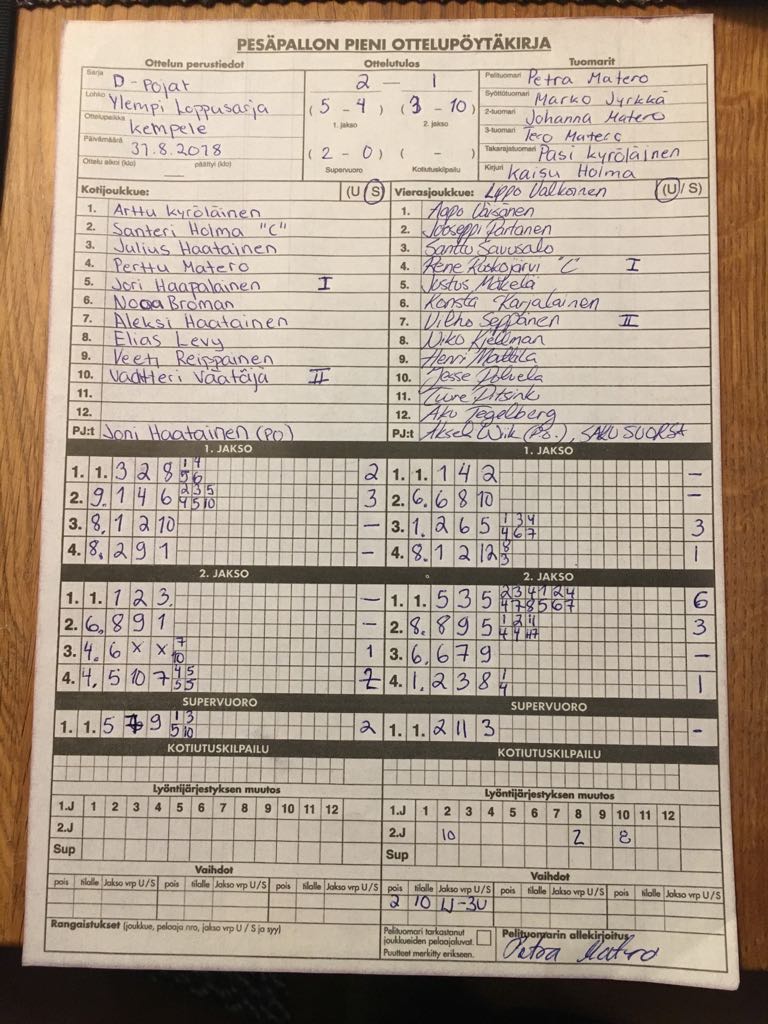 PESÄPALLON PIENI OTTELUPÖYTÄKIRJA
Ottelun perustiedot Ottelutulos Tuomarit
Sarja D-Pojat 2 — 1 Pelituomari Petra Matero
Lohko Ylempi Loppusarja (5 - 4) (3 - 10) Syöttötuomari Marko Jyrkkä
Ottelupaikka Kempele 1. jakso 2. jakso 2-tuomari Johanna Matero
Päivämäärä 31.8.2018 3-tuomari Tero Matero
Ottelu alkoi (klo) — päättyi (klo) (2 - 0) ( - ) Takarajatuomari Pasi Kyröläinen
Supervuoro Kotiutuskilpailu Kirjuri Kaisu Holma
Kotijoukkue: (U/S) Vierasjoukkue: Lippo Valkoinen (U/S)
1. Arttu Kyröläinen 1. Aapo Väisänen
2. Santeri Holma "C" 2. Jooseppi Partanen
3. Julius Haatainen 3. Santtu Savusalo
4. Perttu Matero 4. Rene Ruskojärvi "C" I
5. Jori Haapalainen I 5. Justus Mäkelä
6. Nooa Broman 6. Konsta Karjalainen
7. Aleksi Haatainen 7. Vilho Seppänen II
8. Elias Levy 8. Niko Kjellman
9. Veeti Reippainen 9. Henri Mattila
10. Valtteri Väätäjä II 10. Jesse
11. 11. Tuure
12. 12. Aku Tegelberg
PJ:t Joni Haatainen (PO) PJ:t Aksel Wiik SAKU SUORSA
1. JAKSO 1. JAKSO
1. 1. 3 2 8 1 4 2 1. 1. 1 4 2 —
5 6
2. 9. 1 4 6 2 3 5 3 2. 6. 6 8 10 —
4 5 10
3. 8. 1 2 10 — 3. 1. 2 6 5 1 3 4 3
4 6 7
4. 8. 2 9 1 — 4. 8. 1 2 12 8 1
3
2. JAKSO 2. JAKSO
1. 1. 1 2 3. — 1. 1. 5 3 5 2 3 4 1 2 4 6
4 7 8 5 6 7
2. 6. 8 9 1 — 2. 8. 8 9 5 1 2 4 3
4 4
3. 4. 6 x x 7 1 3. 6. 6 7 9 —
10
4. 4. 5 10 7 4 5 2 4. 1. 2 3 8 1 1
5 5 4
SUPERVUORO SUPERVUORO
1. 1. 5 9 1 3 2 1. 1. 2 11 3 -
5 10
KOTIUTUSKILPAILU KOTIUTUSKILPAILU
Lyöntijärjestyksen muutos Lyöntijärjestyksen muutos
1.J 1 2 3 4 5 6 7 8 9 10 11 12 1.J 1 2 3 4 5 6 7 8 9 10 11 12
2.J 2.J 10 2 8
Sup Sup
Vaihdot Vaihdot
pois tilalle Jakso vrp U/S pois tilalle Jakso vrp U/S pois tilalle Jakso vrp U/S pois tilalle Jakso vrp U/S pois tilalle Jakso vrp U/S pois tilalle Jakso vrp U/S
2 10 1J-3U
Rangaistukset (joukkue, pelaaja nro, jakso vrp U/S ja syy) Pelituomari tarkastanut Pelituomarin allekirjoitus
joukkueiden pelaajaluvat. Petra Matero
Puutteet merkitty erikseen.